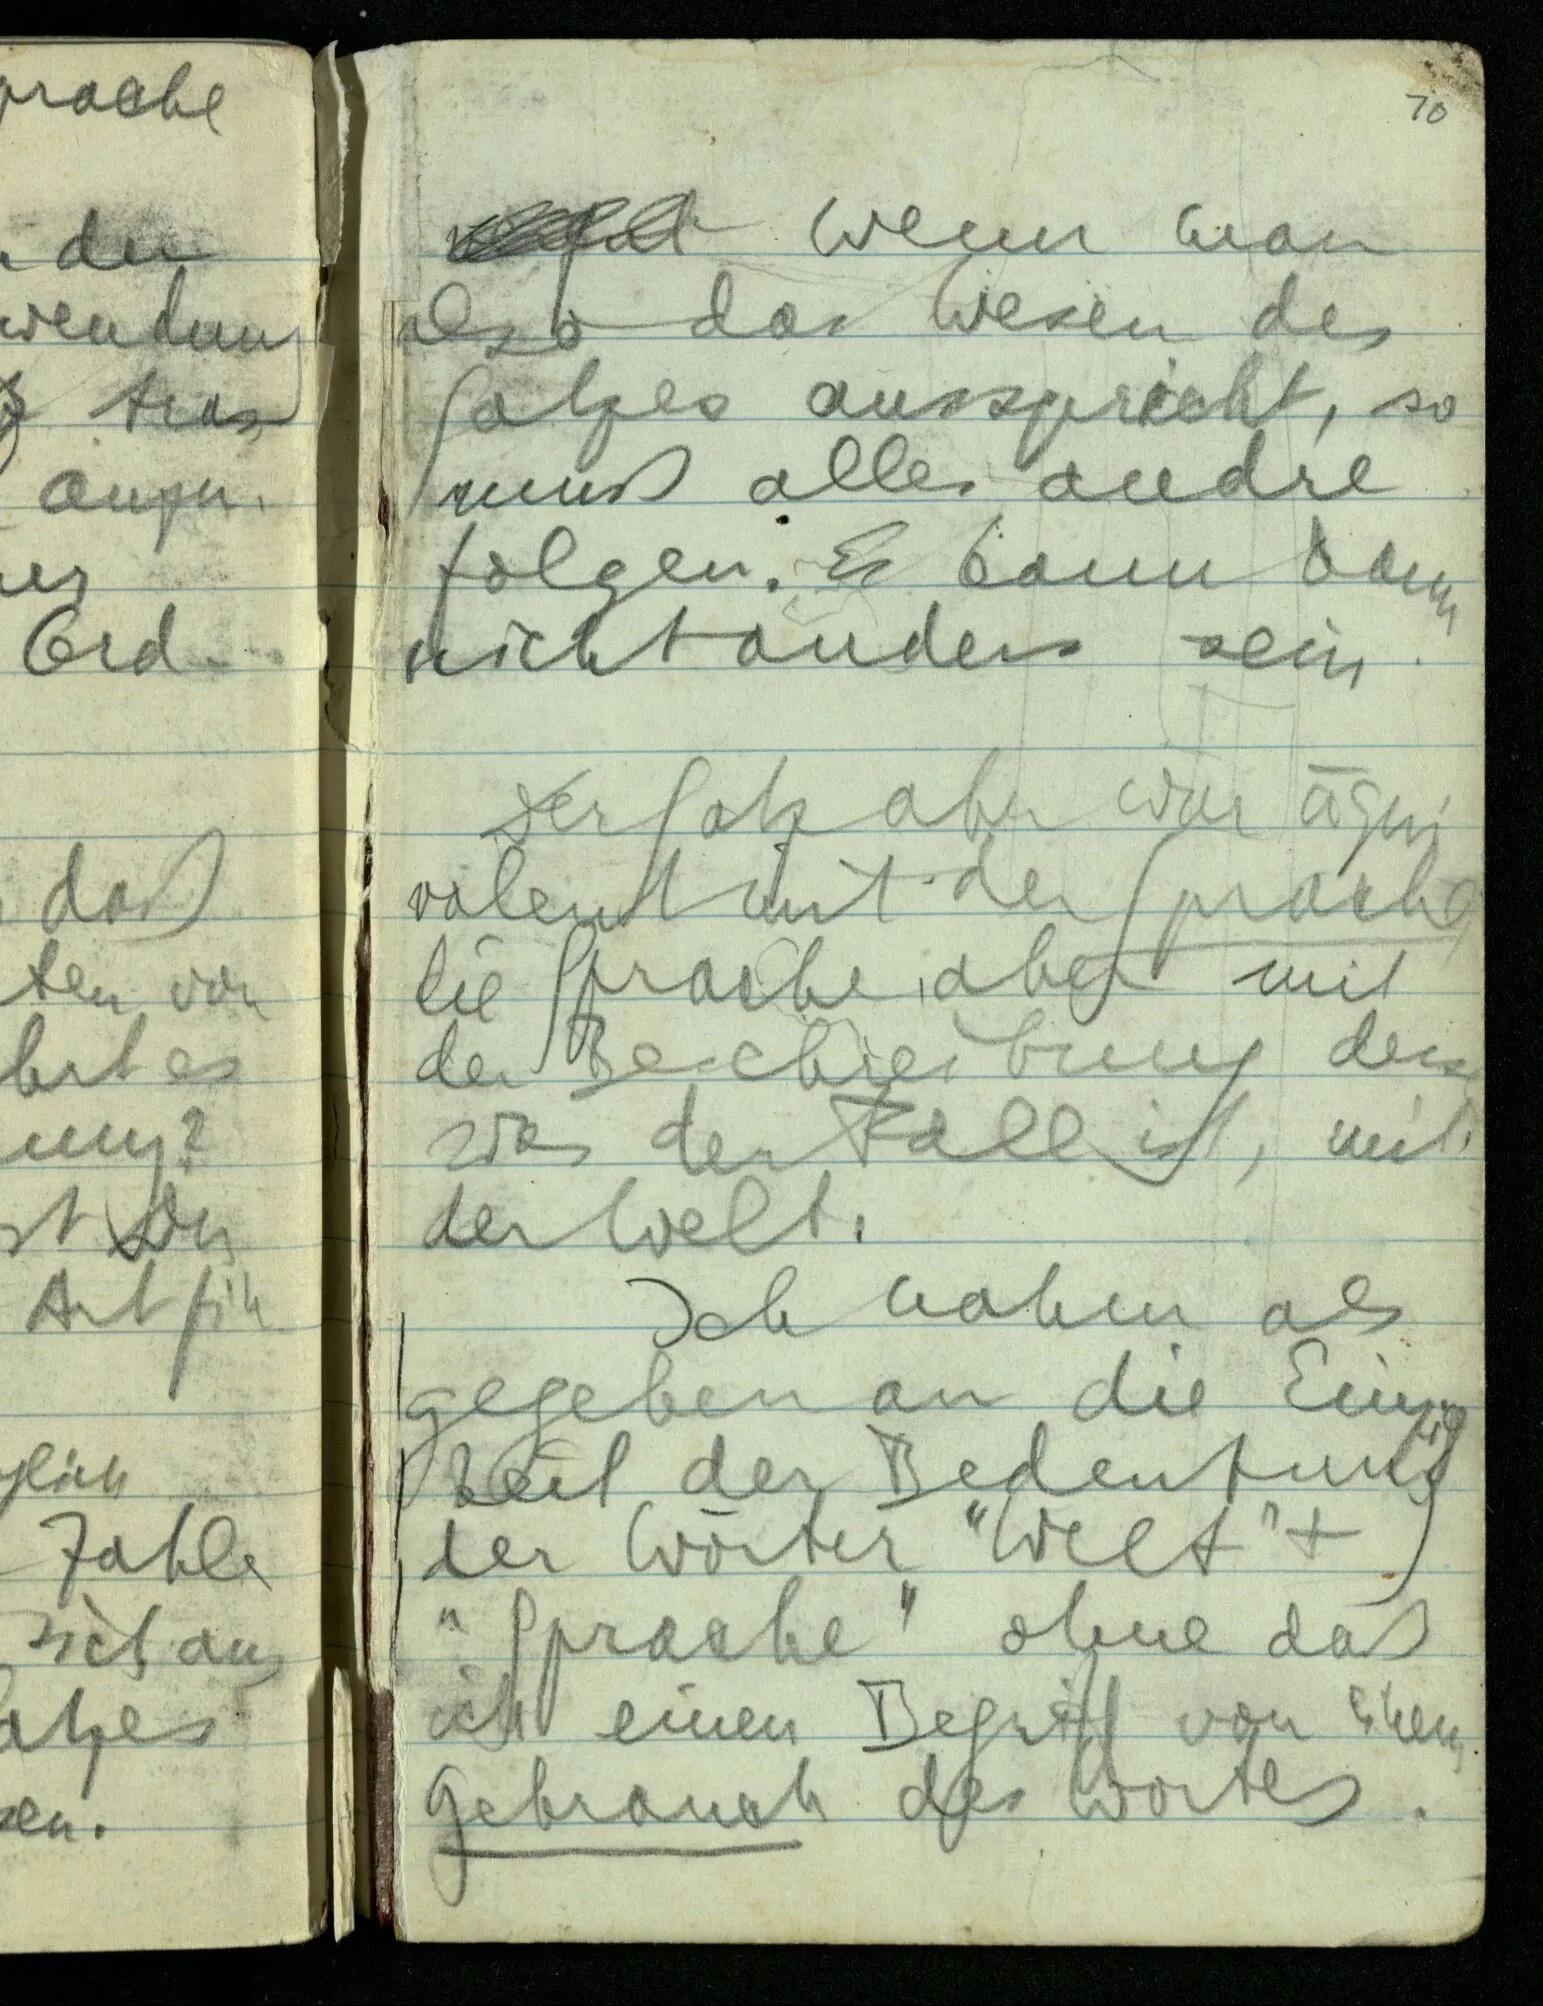 prache
der
wendung
tras
Ord
daß
ten von
brt es
ung?
Art für
glich
Zahle
sich aus
atzes
sen.
70
Wenn man
also das Wesen des
Satzes ausspricht, so
muß alles andre
folgen. Es kann dann
nicht anders sein.
Der Satz aber war äqui
valent mit der Sprache
die Sprache aber mit
der Beschreibung dess
was der Fall ist, mit
der Welt.
Ich nahm als
gegeben an die Einig
keit der Bedeutung
der Wörter "Welt" +
"Sprache" ohne daß
ich einen Begriff von
Gebrauch des Wortes.